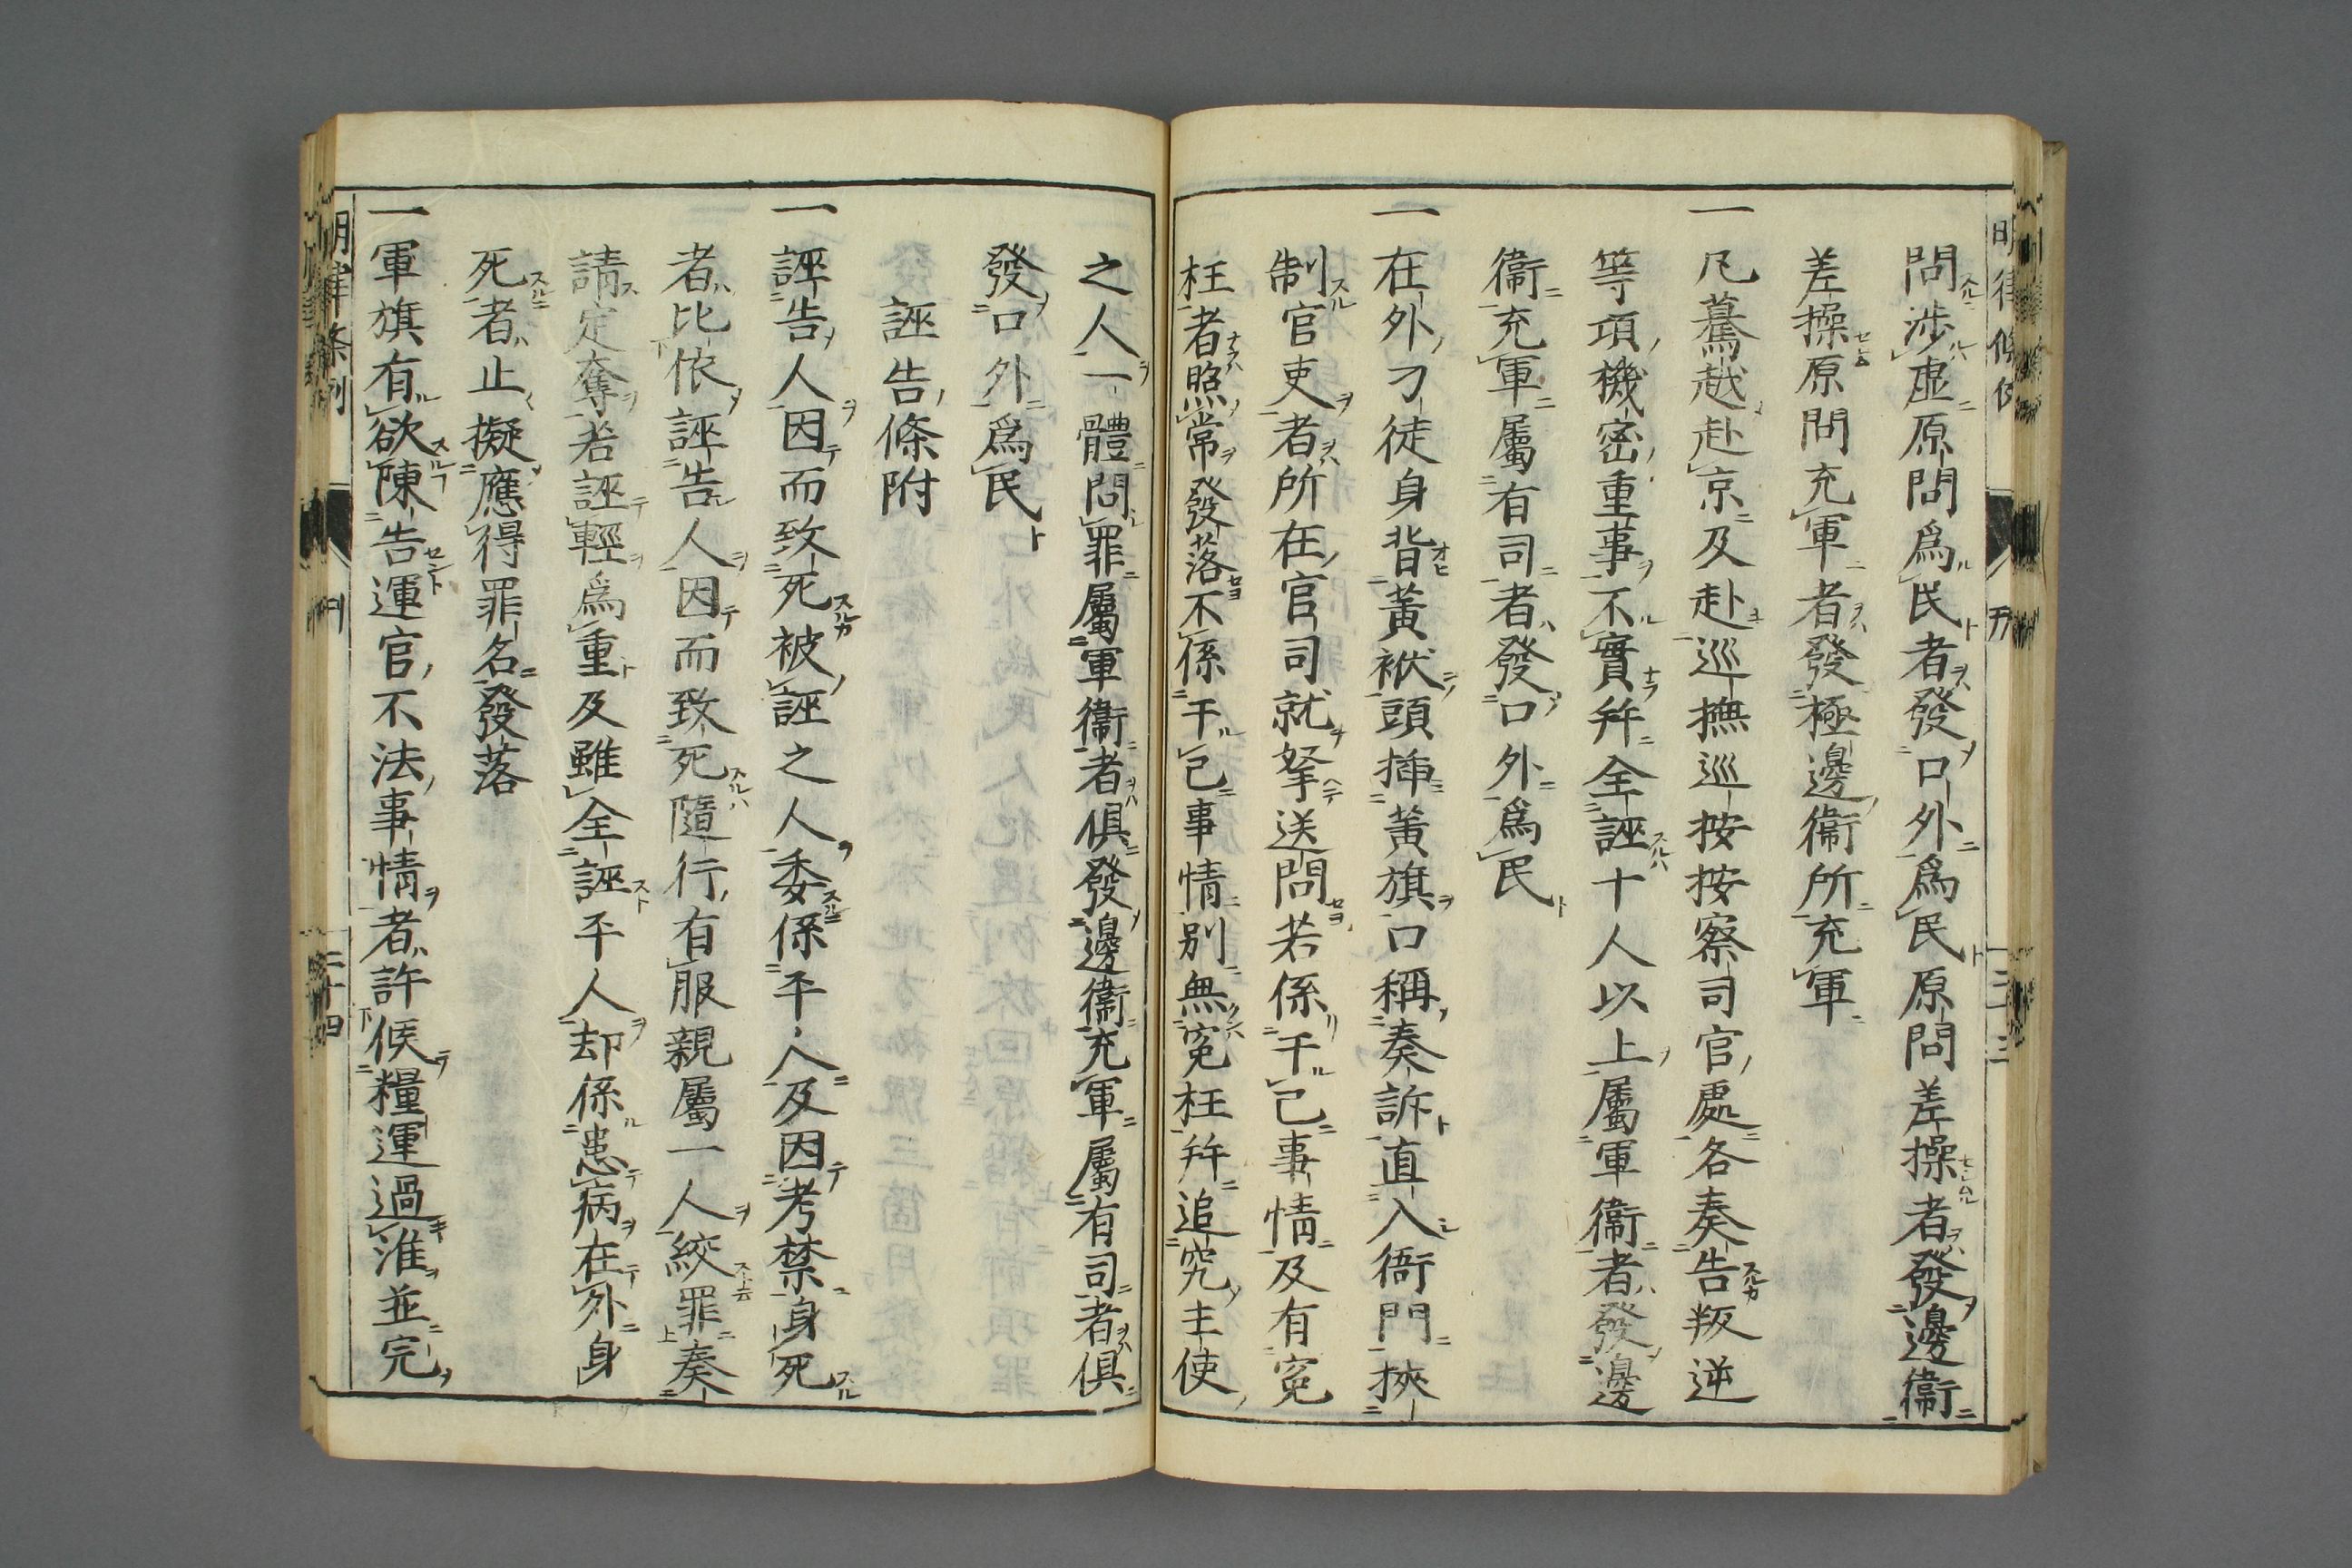 問涉虛原問為民者發口外為民原問差操者發邊衞
差操原問充軍者發極邊衞所充軍
一凡驀越赴京及赴巡撫巡按按察司官處各奏告叛逆
等項機密重事不實并全誣十人以上屬軍衞者發邊
衞充軍屬有司者發口外為民
一在外刁徒身背黃袱頭揷黃旗口稱奏訴直入衙門挾
制官吏者所在官司就拏送問若係干己事情及有冤
枉者照常發落不係干己事情別無冤枉并追究主使
之人一體問罪屬軍衞者俱發邊衞充軍屬有司者俱
發口外為民
誣告條附
一誣告人因而致死被誣之人委係平人及因考禁身死
者比依誣告人因而致死隨行有服親屬一人絞罪奏
請定奪若誣輕為重及雖全誣平人却係患病在外身
死者止擬應得罪名發落
一軍旗有欲陳告運官不法事情者許候糧運過淮並完
明律條例
二十四